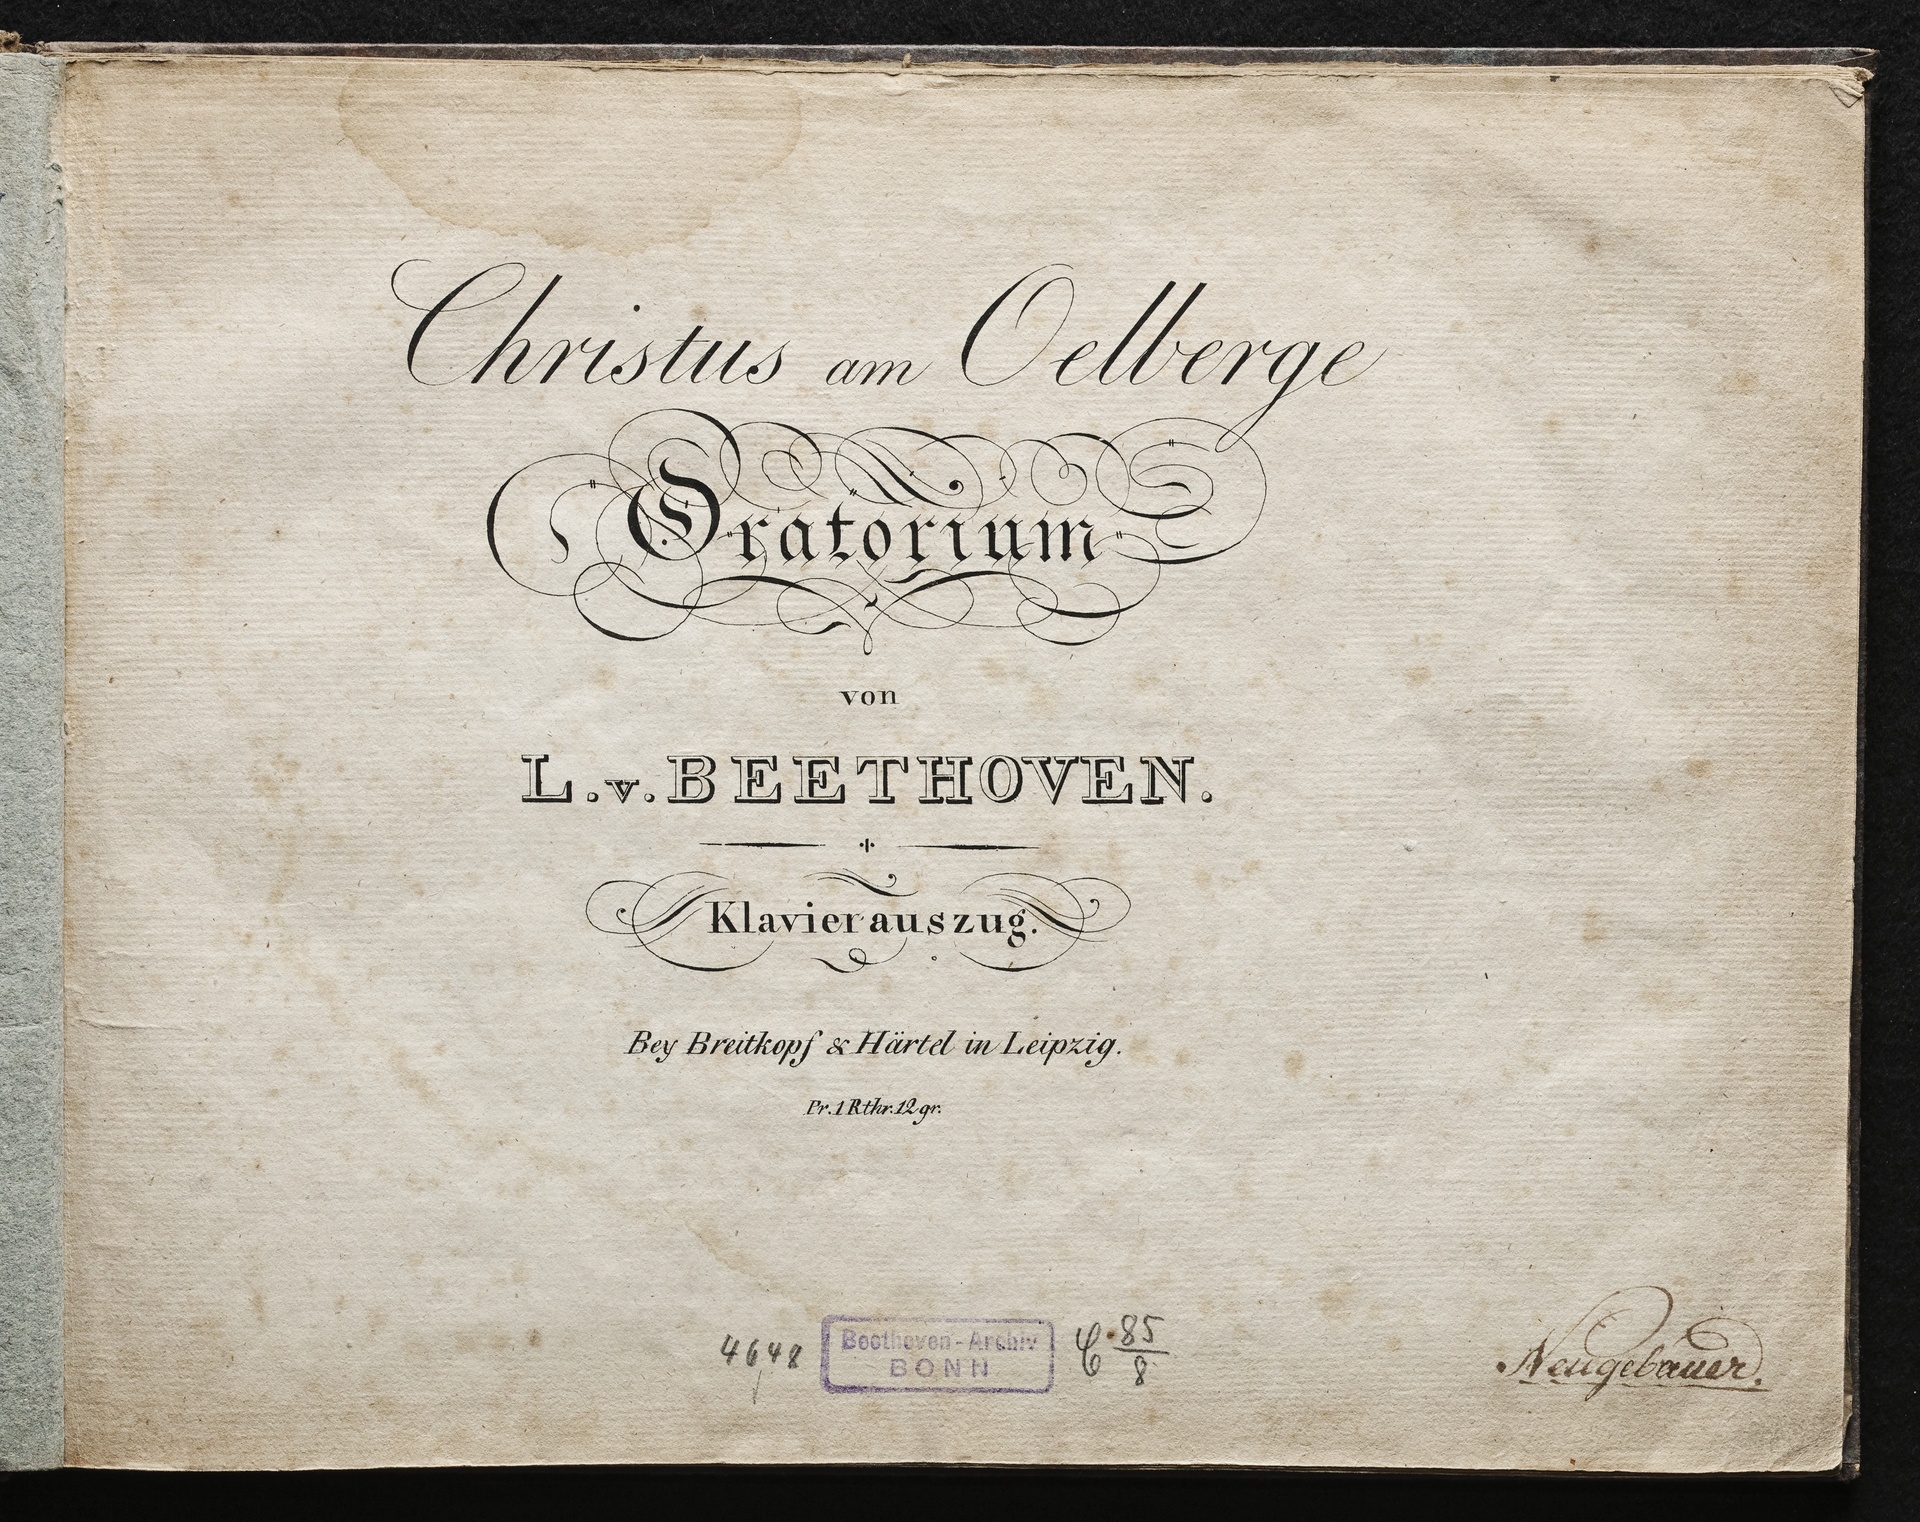 Christus am Oelberge
Oratorium
von
L. v. BEETHOVEN.
Klavierauszug.
Bey Breitkopf & Härtel in Leipzig.
Pr. 1 Rthr. 12 gr.
4648
Beethoven-Archiv
BONN
C 85/8
Neugebauer.